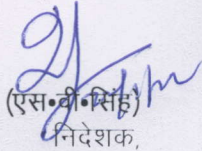 (एस॰वी॰सिंह)
निदेशक,